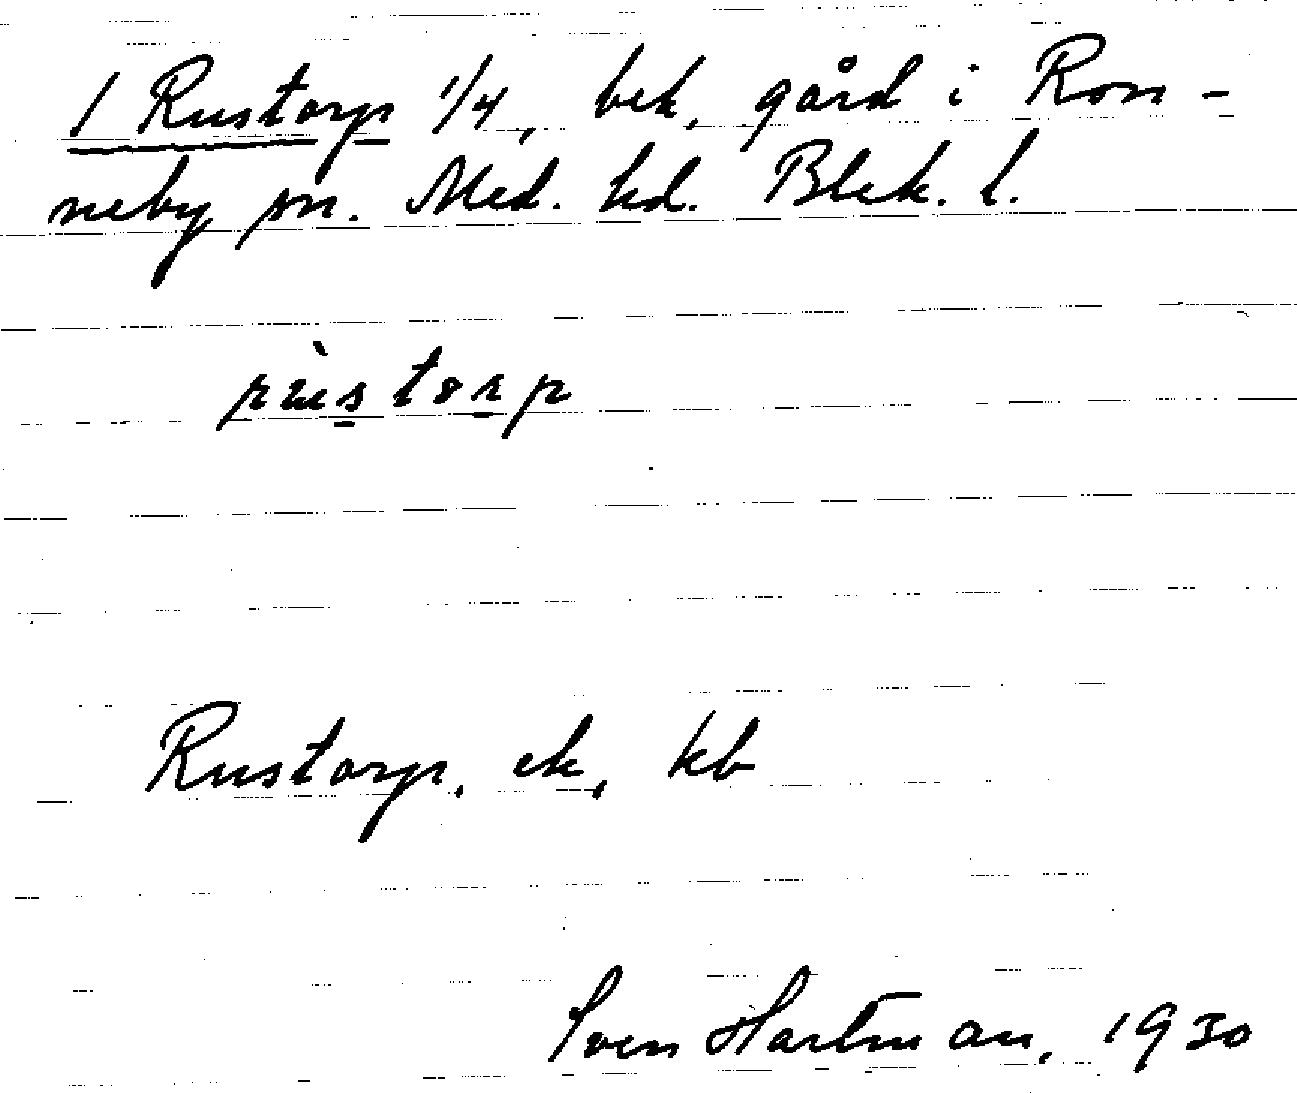 1 Rustorp 1/4, bek. gård i Ron-
neby sn. Med. hd. Blek. l.
rùstorp
Rustorp, ek, kb
Sven Hartman, 1930